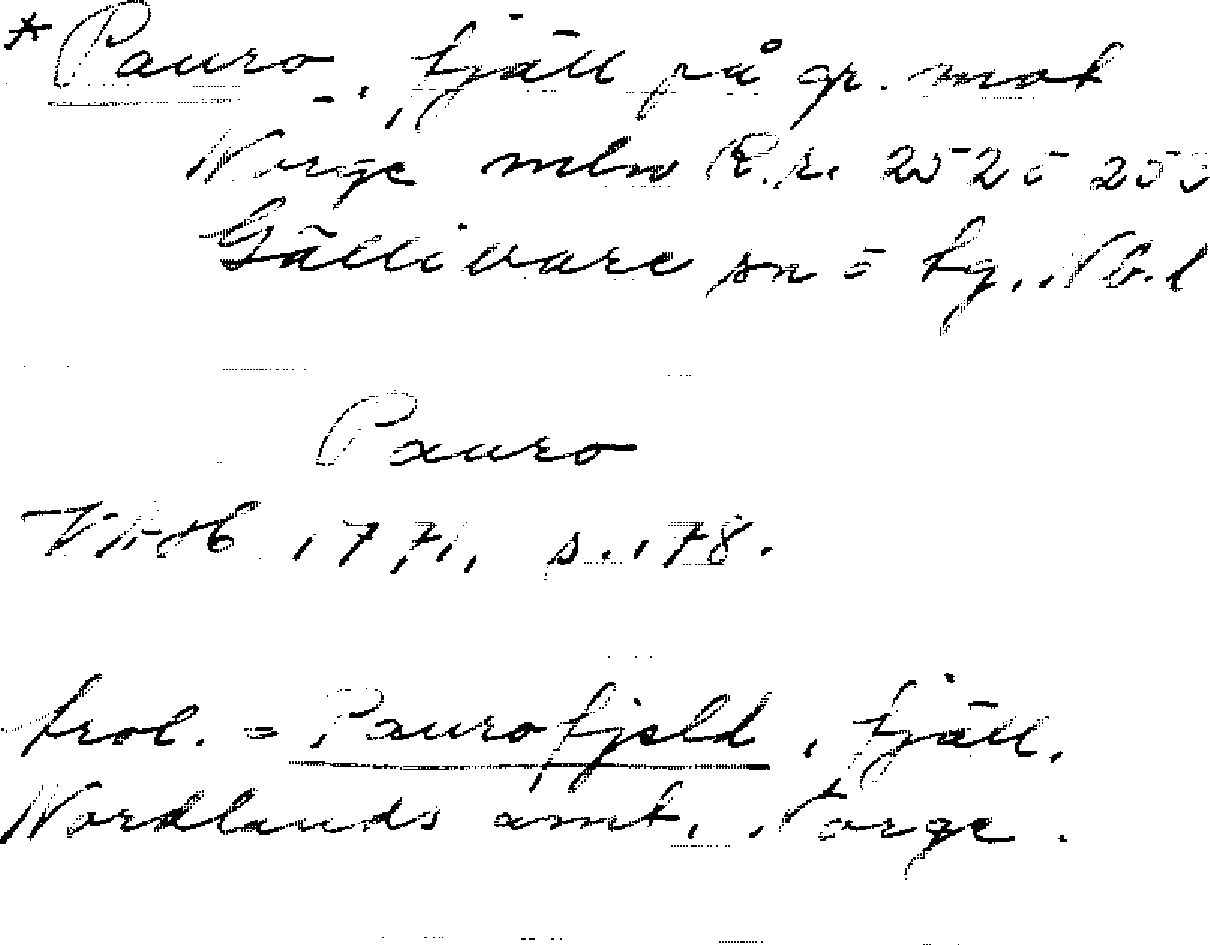 *Pauro, fjäll på gr. mot
Norge mln R.r. 252 o 253
Gällivare sn o tg., Nb. l
Pauro
1771, s. 178.
trol. = Paurofjeld, fjäll,
Nordlands amt, Norge.